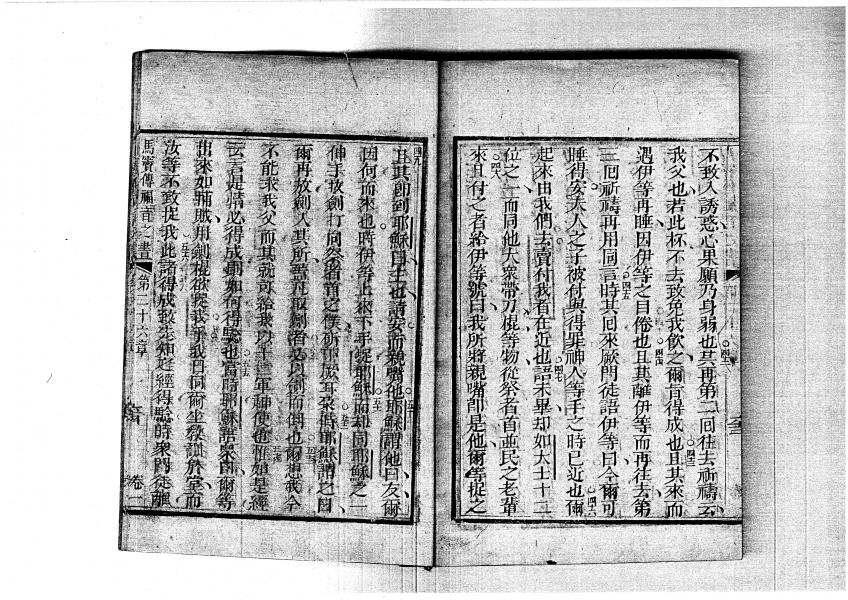 不致入誘惑心果願乃身弱也其再第二回往去祈禱云
我父也若此杯不去致免我飲之爾旨得成也且其來而
遇伊等再睡因伊等之目倦也且其離伊等而再往去第
三回祈禱再用同言時其回來厥門徒語伊等曰今爾可
睡得安夫人之子被付與得罪神人等手之時已近也
起來由我們去賣付我者在近也語未畢却如大士十二
位之一而同他大衆帶刀棍等物從祭者首並民之老輩
來且付之者給伊等號曰我所將親嘴即是他爾等捉之
且其卽到耶穌曰師也請安而親嘴他耶穌謂他曰友爾
因何而來也時伊等上來下手捉耶穌而却同耶穌之一
伸手拔劍打向祭者首之僕斫下厥耳朵時耶穌謂之曰
爾再放劍入其所蓋凡取劍者必以劍而倒也爾想我今
不能求我父而其就可給我以十二軍神使
云言是情必得成則如何得驗也當時耶穌語衆曰爾等
出來如捕賊用劍棍欲捉我乎我日同爾坐教訓於堂而
汝等不致捉我此諸得成致先知之經得驗時衆門徒離
馬竇傳福音之書 第二十六章 卷一